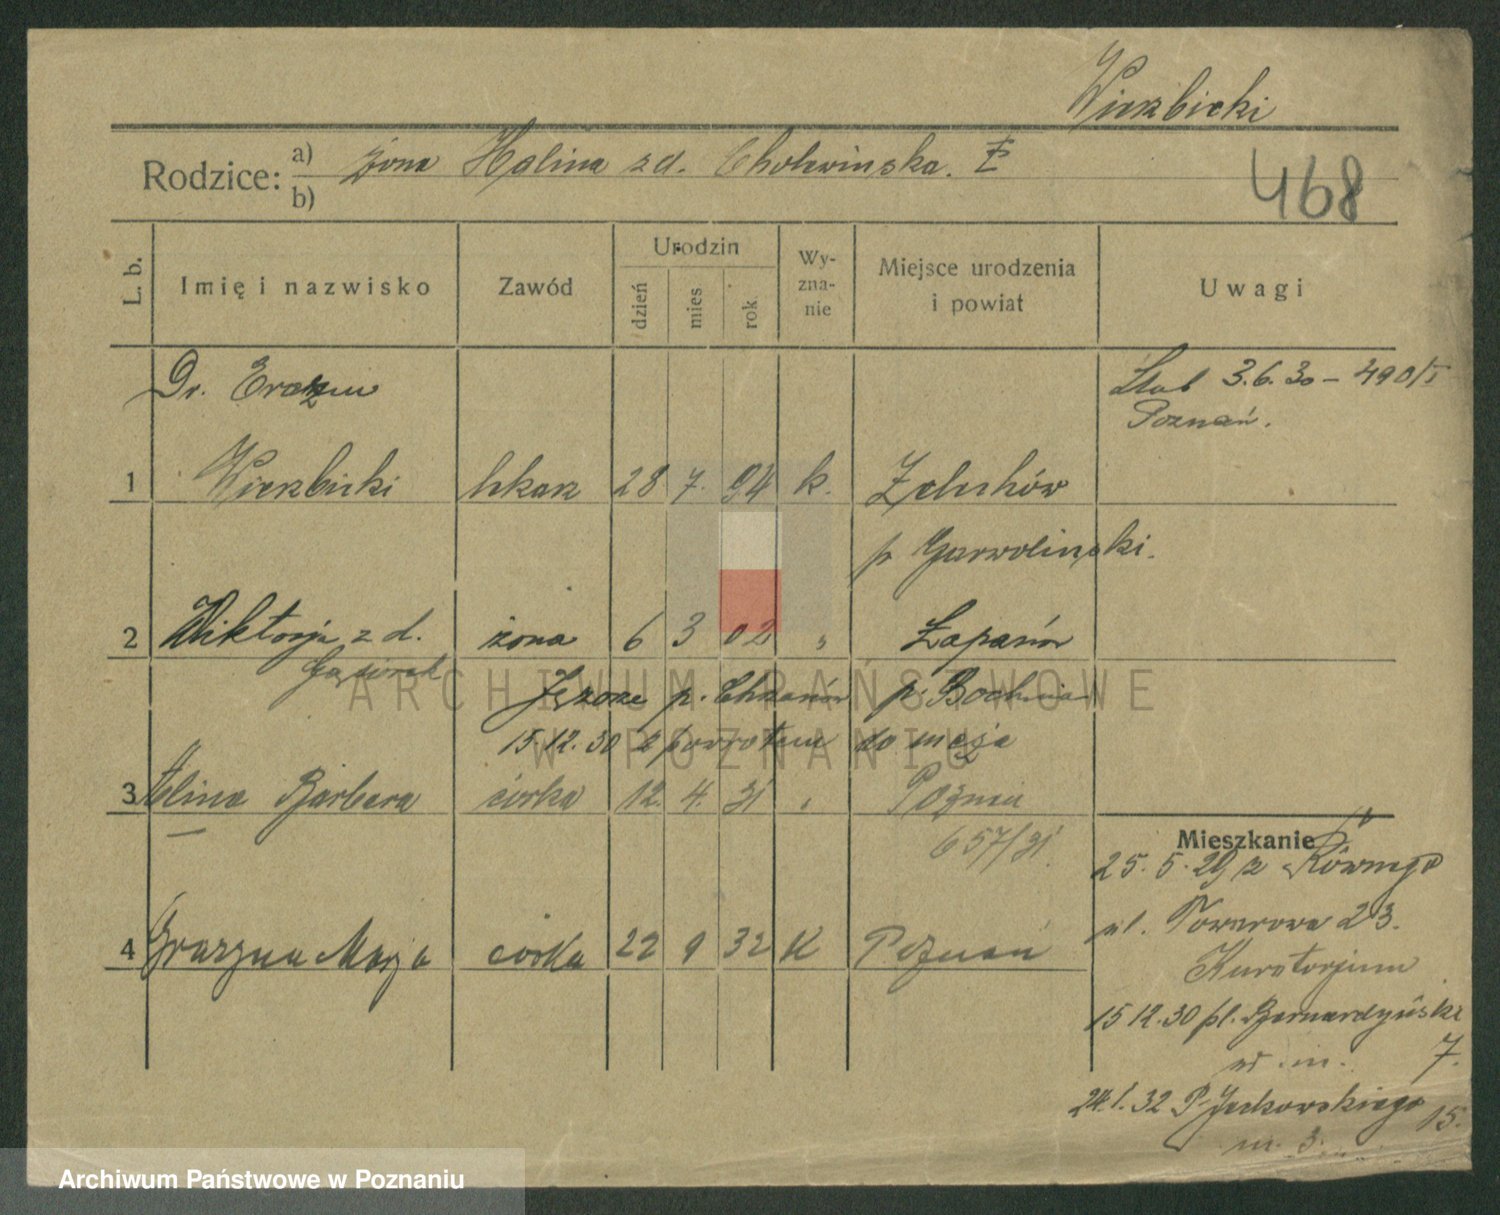 Wierzbicki
Rodzice: a) żona Halina zd. Cholewińska.
b)
468
L. b.
Imię i nazwisko
Zawód
Urodzin
dzień
mies
rok.
Wy-
zna-
nie
Miejsce urodzenia
i powiat
Uwagi
Dr. Erazm
Ślub 3.6.30 – 490/I
Poznań.
1 Wierzbicki lekarz 28 7. 94 k. Żelechów
p Garwoliński.
2 Wiktorja z d. żona 6 3 02 " Łapanów
Gąsiorek
p. Chrzanów p. Bochnia
15.12.30 z powrotem do męża
3 Alina Barbara córka 12. 4. 31 " Poznań
657/31.
Mieszkanie
25. 5. 29 z Równego
ul. Towarowa 23.
Kuratorjum
4 Grażyna Marja córka 22 9 32 K Poznań
15 12.30 pl. Bernardyński
m. 7.
24.1.32 P. Jackowskiego 15.
m. 3.
ARCHIWUM PAŃSTWOWE
W POZNANIU
Archiwum Państwowe w Poznaniu